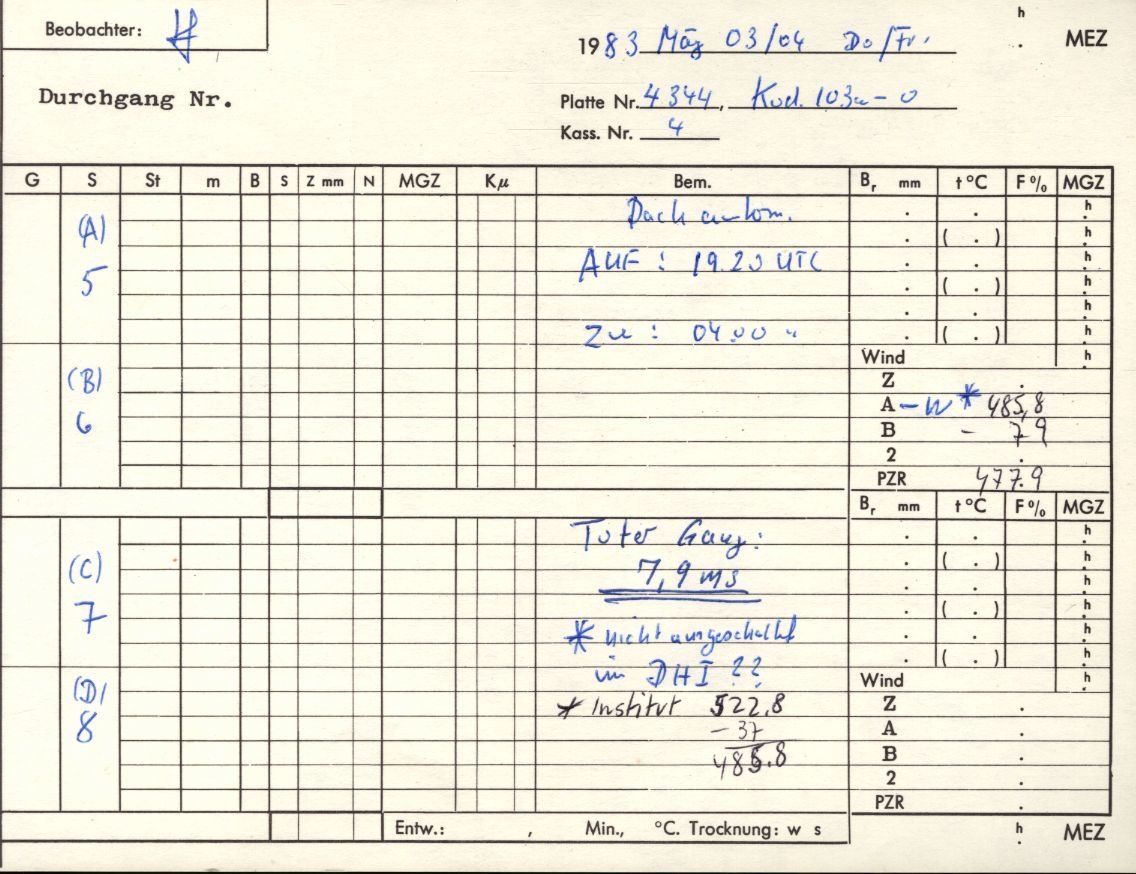 Beobachter: H
h
1983 März 03/04 Do/Fr. . MEZ
Durchgang Nr.
Platte Nr. 4344, Kod. 103a-O
Kass. Nr. 4
G S St m B S Z mm N MGZ Kµ Bem. Br mm t °C F% MGZ
Dach autom. . . h
(A) . ( . ) h
AUF : 19.20 UTC . . h
5 . ( . ) h
. . h
Zu : 04.00 " . ( . ) h
Wind h
(B) Z .
A - W * 485,8
6 B - 7 9
2 .
PZR 477.9
Br mm t °C F% MGZ
Toter Gang: . . h
(C) 7,9 ms . ( . ) h
. . h
7 . ( . ) h
* nicht ausgeschaltet . . h
im DHI ?? . ( . ) h
(D) Wind h
* Institut 522.8 Z .
8 - 37 A .
485.8 B .
2 .
PZR .
Entw.: , Min., °C. Trocknung: w s h . MEZ